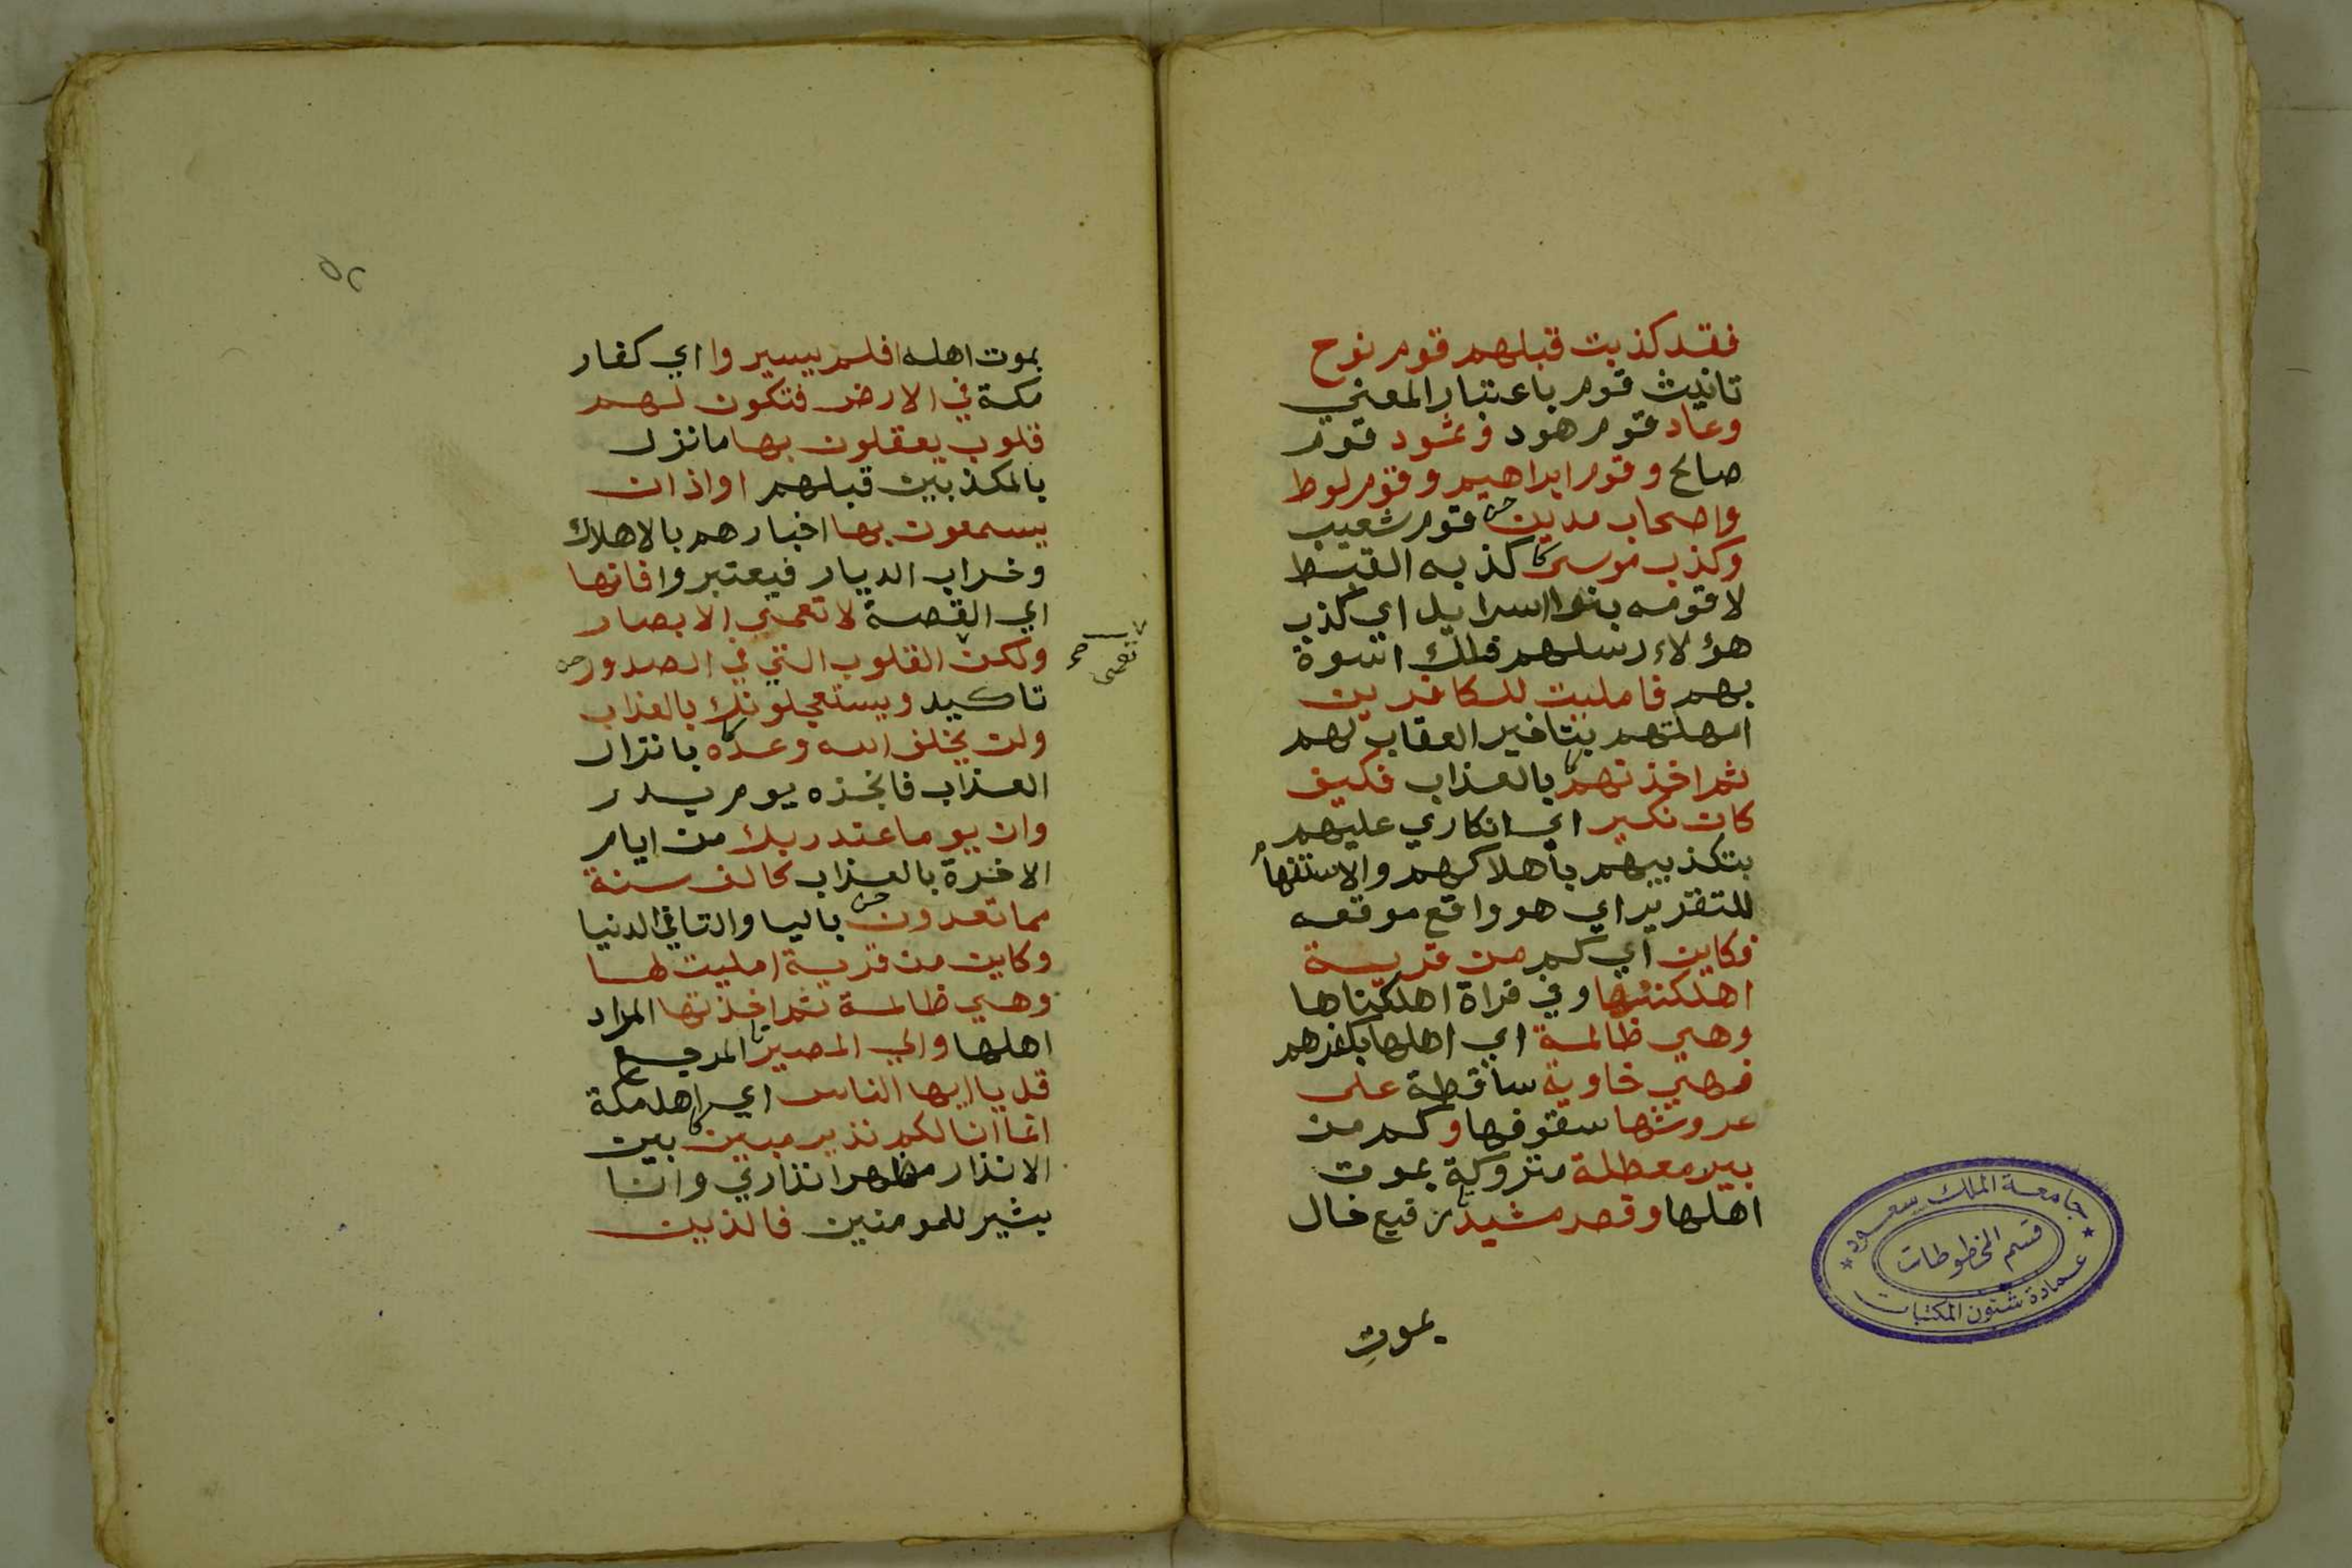 فقد كذبت قبلهم قوم نوح
تانيث قوم باعتبار المعني
وعاد قوم هود وثمود قوم
صالح وقوم ابراهيم وقوم لوط
واصحاب مدين قوم شعيب
وكذب موسى كذبه القبط
لا قومه بنوا اسرايل اي كذب
هؤلاء رسلهم فلك اسوة
بهم فامليت للكافرين
امهلتهم بتاخير العقاب لهم
ثم اخذتهم بالعذاب فكيف
كان نكير اي انكاري عليهم
بتكذيبهم باهلاكهم والاستفهام
للتقرير اي هو واقع موقعه
فكاين اي كم من قرية
اهلكتها وفي قراة اهلكناها
وهي ظالمة اي اهلها بكفرهم
فهي خاوية ساقطة على
عروشها سقوفها وكم من
بير معطلة متروكة بموت
اهلها وقصر مشيد رفيع خال
بموت
جامعة الملك سعود
قسم المخطوطات
عمادة شئون المكتبات
٥٢
بموت اهله افلم يسيروا اي كفار
مكة في الارض فتكون لهم
قلوب يعقلون بها ما نزل
بالمكذبين قبلهم او اذان
يسمعون بها اخبارهم بالاهلاك
وخراب الديار فيعتبروا فانها
اي القصة لا تعمي الابصار
ولكن القلوب التي في الصدور
تعمى صح
تاكيد ويستعجلونك بالعذاب
ولن يخلف الله وعده بانزال
العذاب فانجزه يوم بدر
وان يوما عند ربك من ايام
الاخرة بالعذاب كالف سنة
مما تعدون باليا والتا في الدنيا
وكاين من قرية امليت لها
وهي ظالمة ثم اخذتها المراد
اهلها والي المصير المرجع
قل يا ايها الناس اي اهل مكة
انما انا لكم نذير مبين بين
الانذار مظهر انذاري وانا
بشير للمومنين فالذين